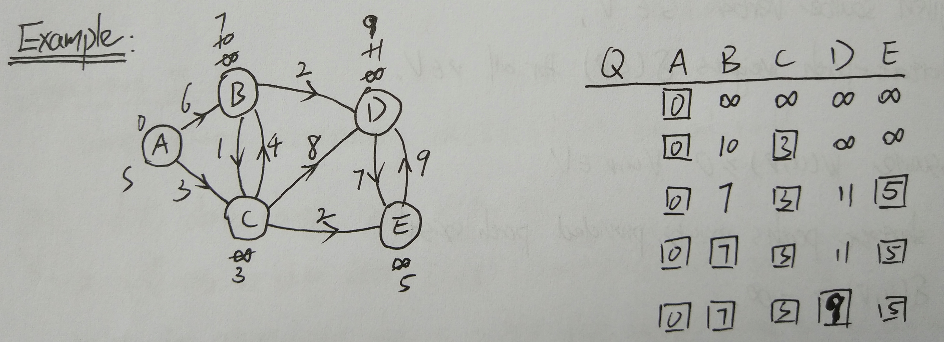 Example:
7
10
∞
9
11
∞
6
B
2
D
0
A
1
4
8
7
9
S
3
C
2
E
∞
3
∞
5
Q A B C D E
0 ∞ ∞ ∞ ∞
0 10 3 ∞ ∞
0 7 3 11 5
0 7 3 11 5
0 7 3 9 5